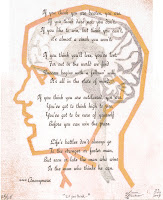 If you think you are beaten, you are.
If you think you dare not, you don't.
If you like to win, but think you can't,
It's almost a cinch you won't.
If you think you'll lose, you've lost,
For out in the world we find
Success begins with a fellow's will,
It's all in the state of mind.
If you think you are outclassed, you are,
You've got to think high to rise.
You've got to be sure of yourself
Before you can win the prize.
Life's battles don't always go
To the stronger or faster man,
But soon or late the man who wins
Is the man who thinks he can.
--- Anonymous